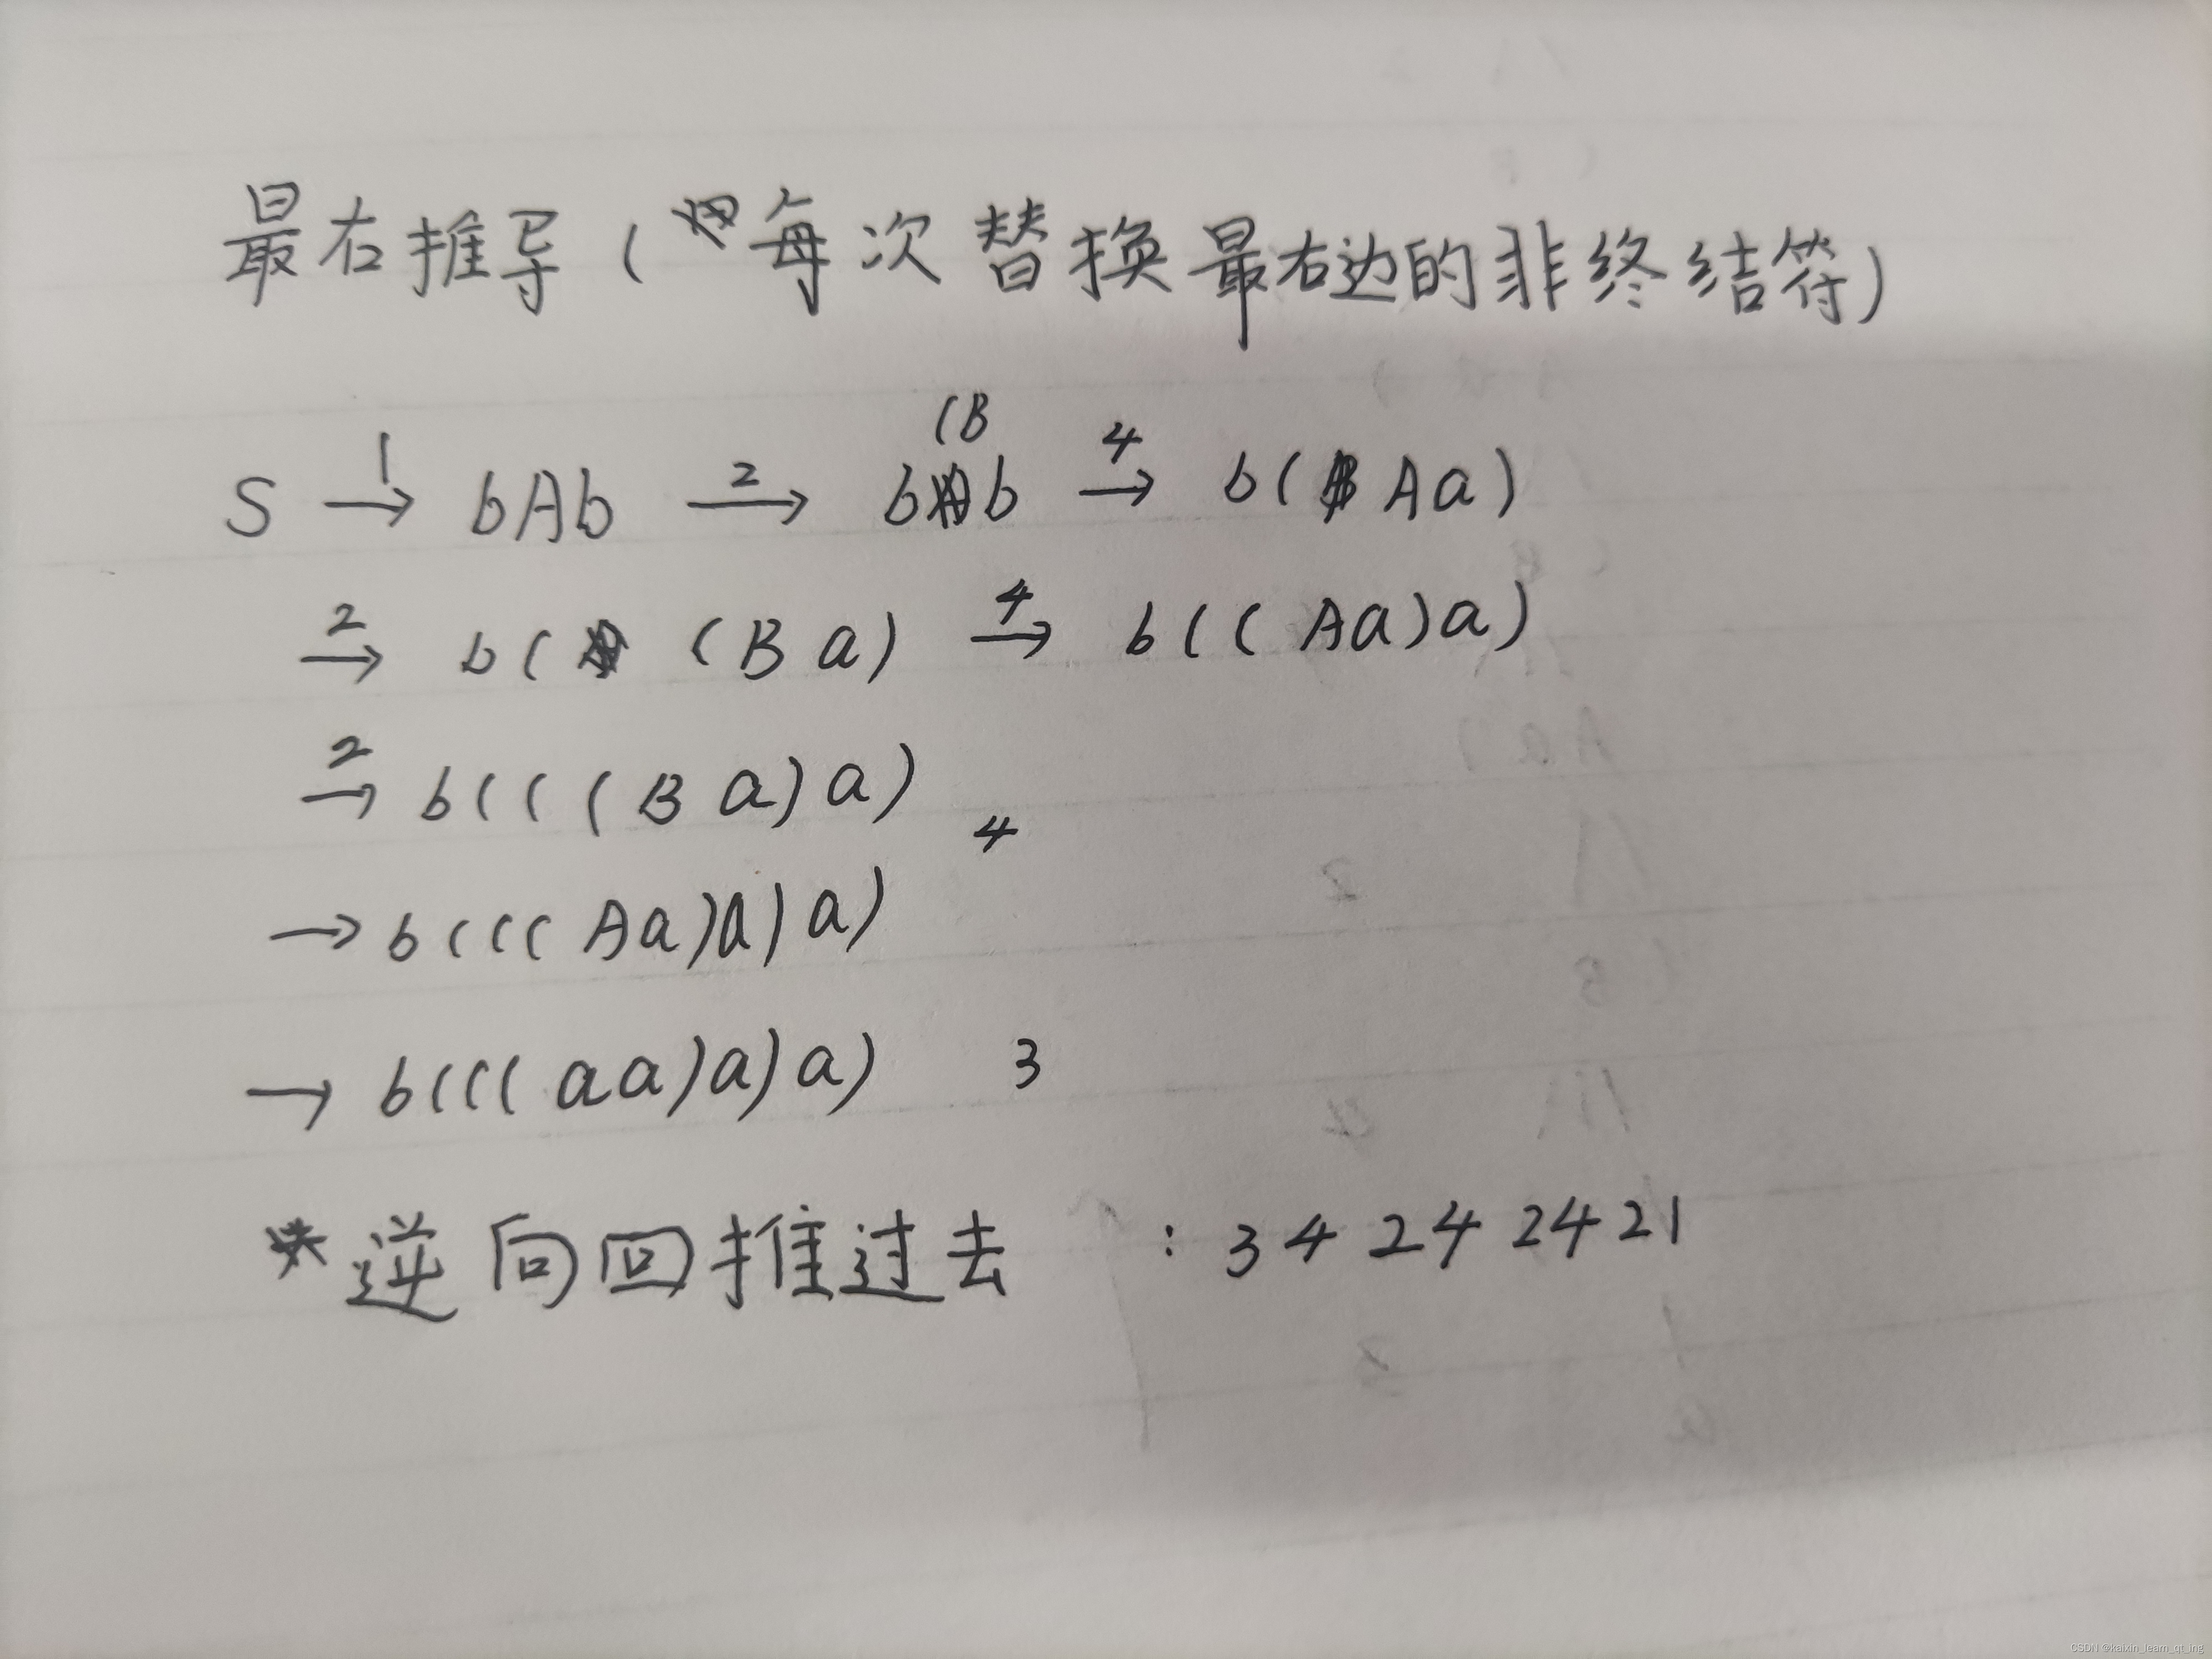 最右推导(每次替换最右边的非终结符)
S →1 bAb →2 b(Bb →4 b(Aa)
→2 b((Ba) →4 b((Aa)a)
→2 b(((Ba)a)
→ b(((Aa)a)a) 4
→ b(((aa)a)a) 3
*逆向回推过去 : 34242421
CSDN @kaixin_learn_qt_ing